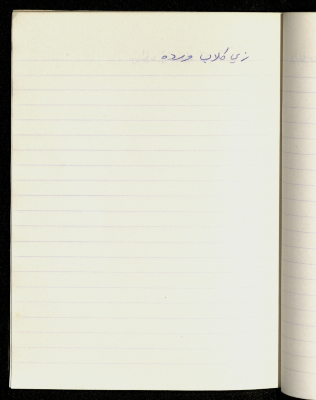 زي كلاب ورده